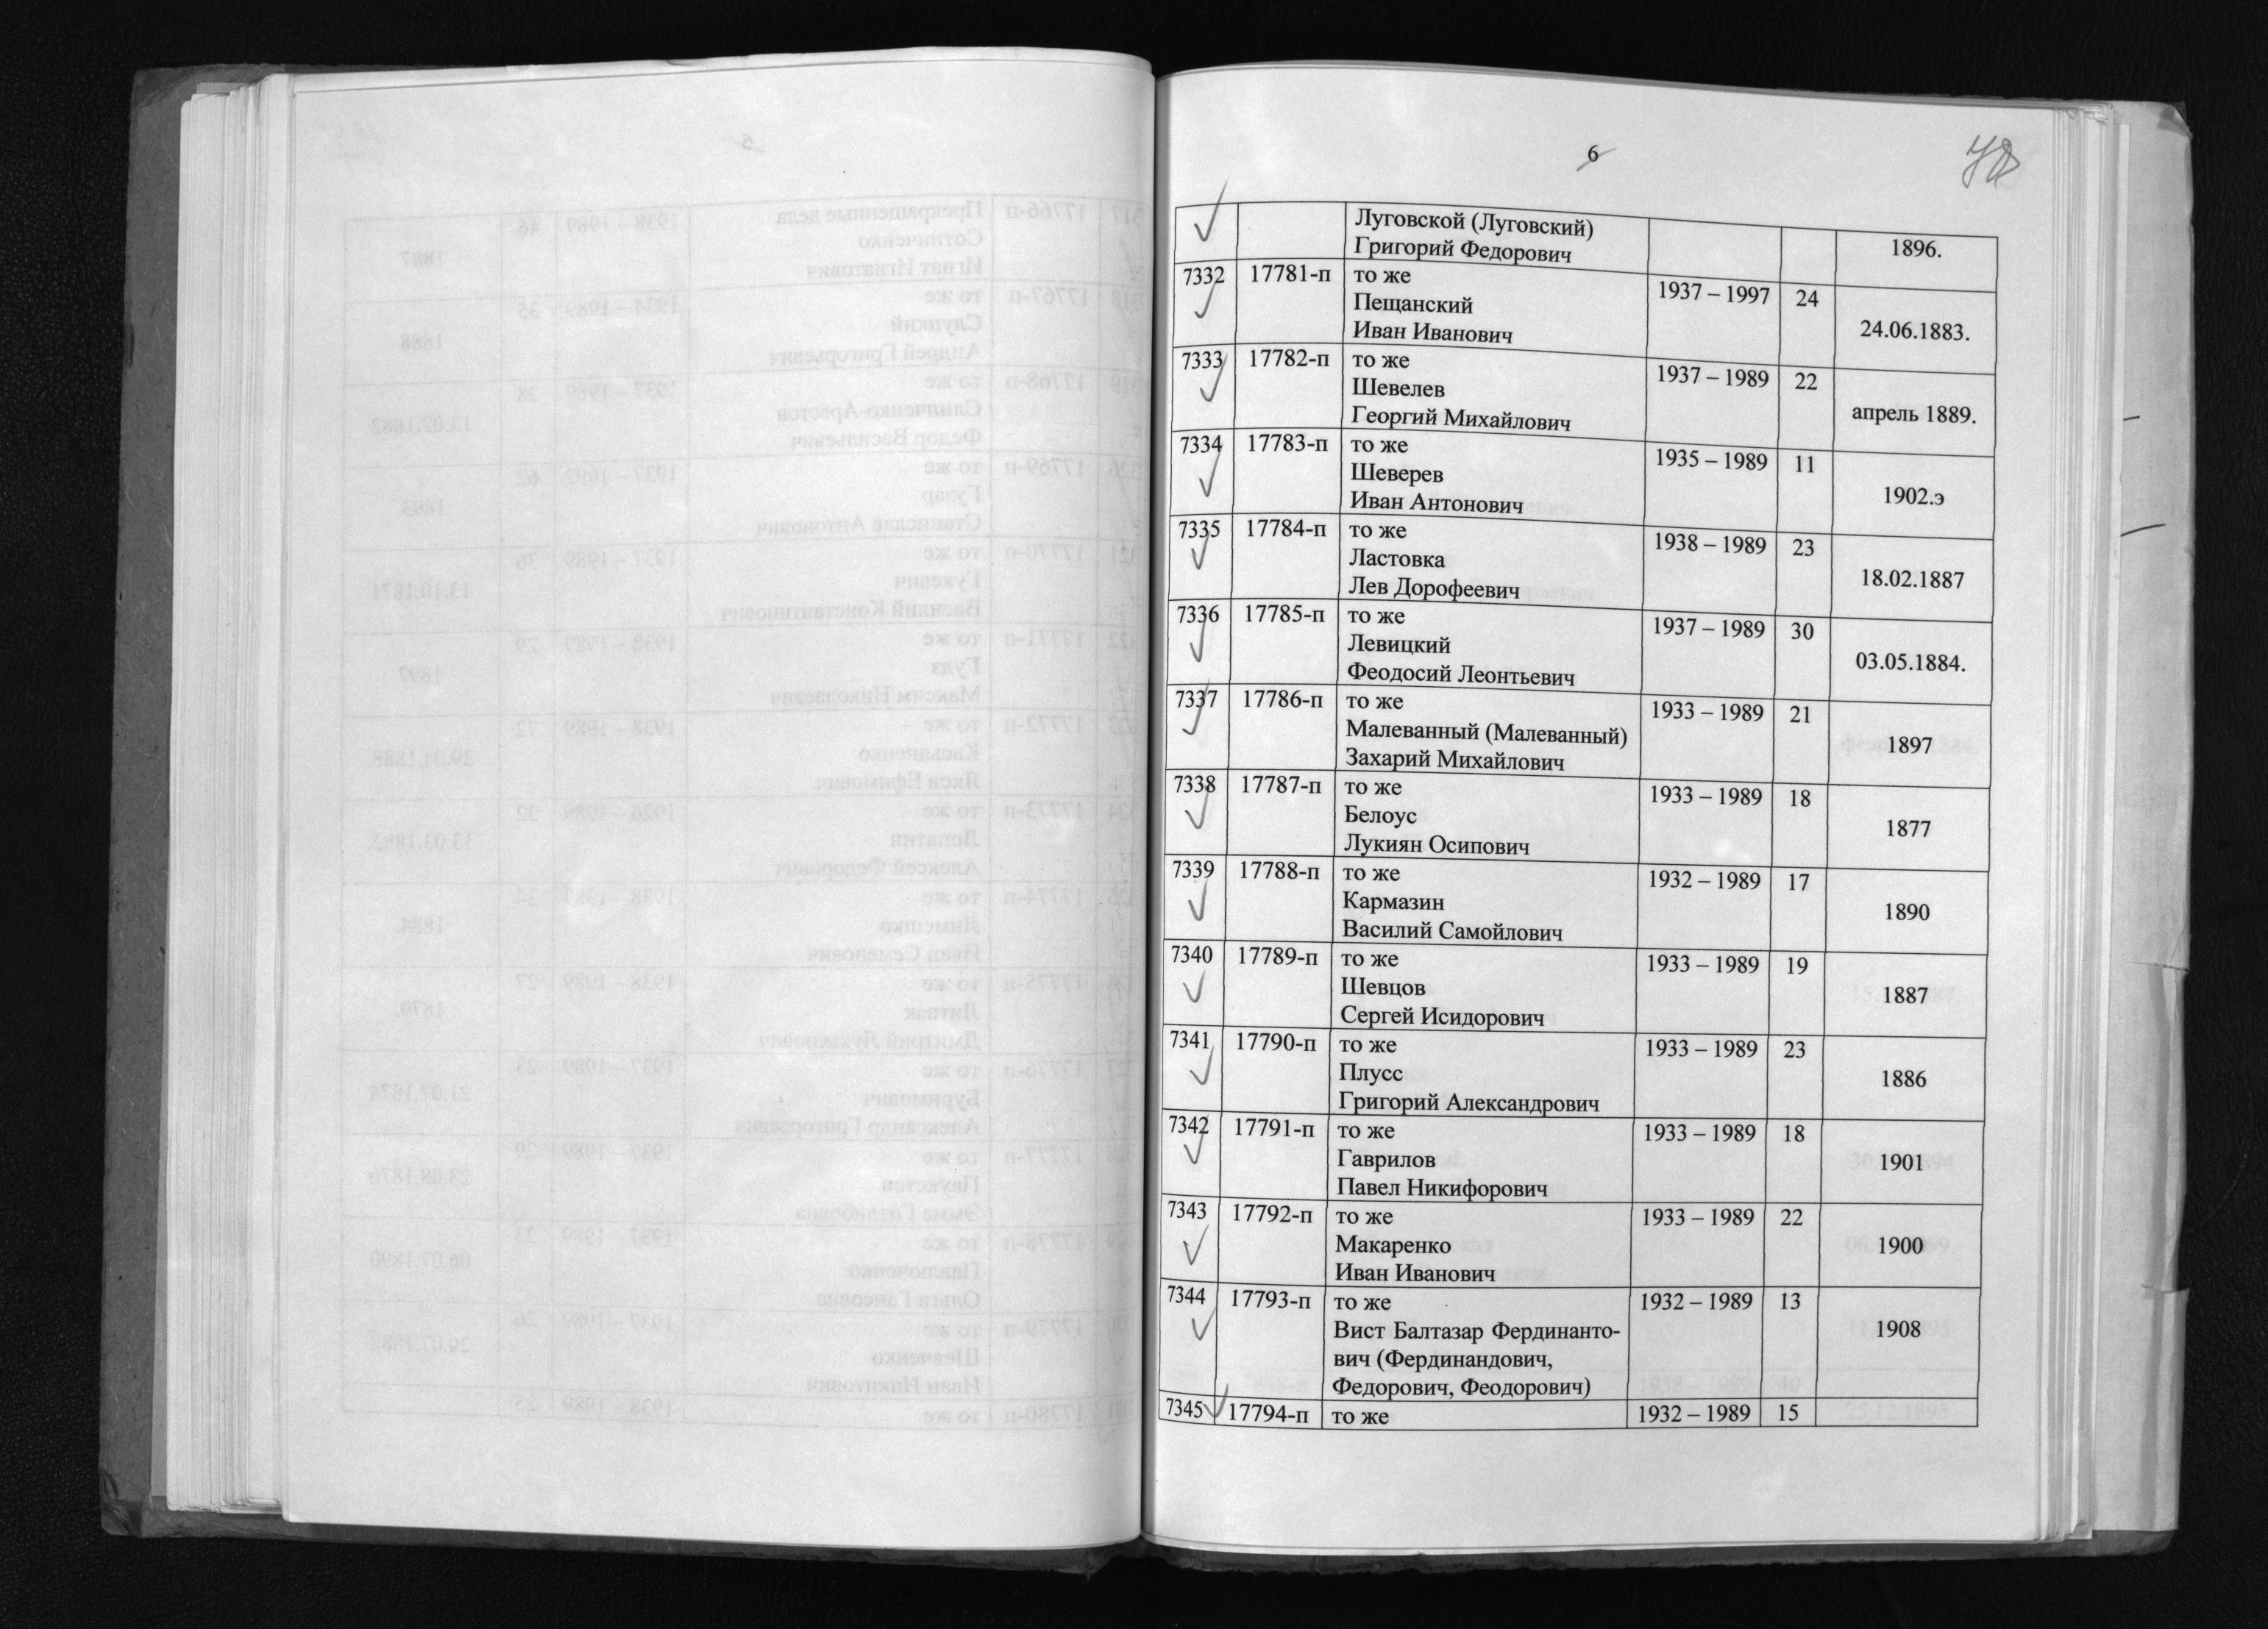 6
Луговской (Луговский)
Григорий Федорович
1896.
7332 17781-п то же 1937 – 1997 24
Пещанский
Иван Иванович
24.06.1883.
7333 17782-п то же 1937 – 1989 22
Шевелев
Георгий Михайлович
апрель 1889.
7334 17783-п то же 1935 – 1989 11
Шеверев
Иван Антонович
1902.э
7335 17784-п то же 1938 – 1989 23
Ластовка
Лев Дорофеевич
18.02.1887
7336 17785-п то же 1937 – 1989 30
Левицкий
Феодосий Леонтьевич
03.05.1884.
7337 17786-п то же 1933 – 1989 21
Малеванный (Малеванный)
Захарий Михайлович
1897
7338 17787-п то же 1933 – 1989 18
Белоус
Лукиян Осипович
1877
7339 17788-п то же 1932 – 1989 17
Кармазин
Василий Самойлович
1890
7340 17789-п то же 1933 – 1989 19
Шевцов
Сергей Исидорович
1887
7341 17790-п то же 1933 – 1989 23
Плусс
Григорий Александрович
1886
7342 17791-п то же 1933 – 1989 18
Гаврилов
Павел Никифорович
1901
7343 17792-п то же 1933 – 1989 22
Макаренко
Иван Иванович
1900
7344 17793-п то же 1932 – 1989 13
Вист Балтазар Фердинанто-
вич (Фердинандович,
Федорович, Феодорович)
1908
7345 17794-п то же 1932 – 1989 15